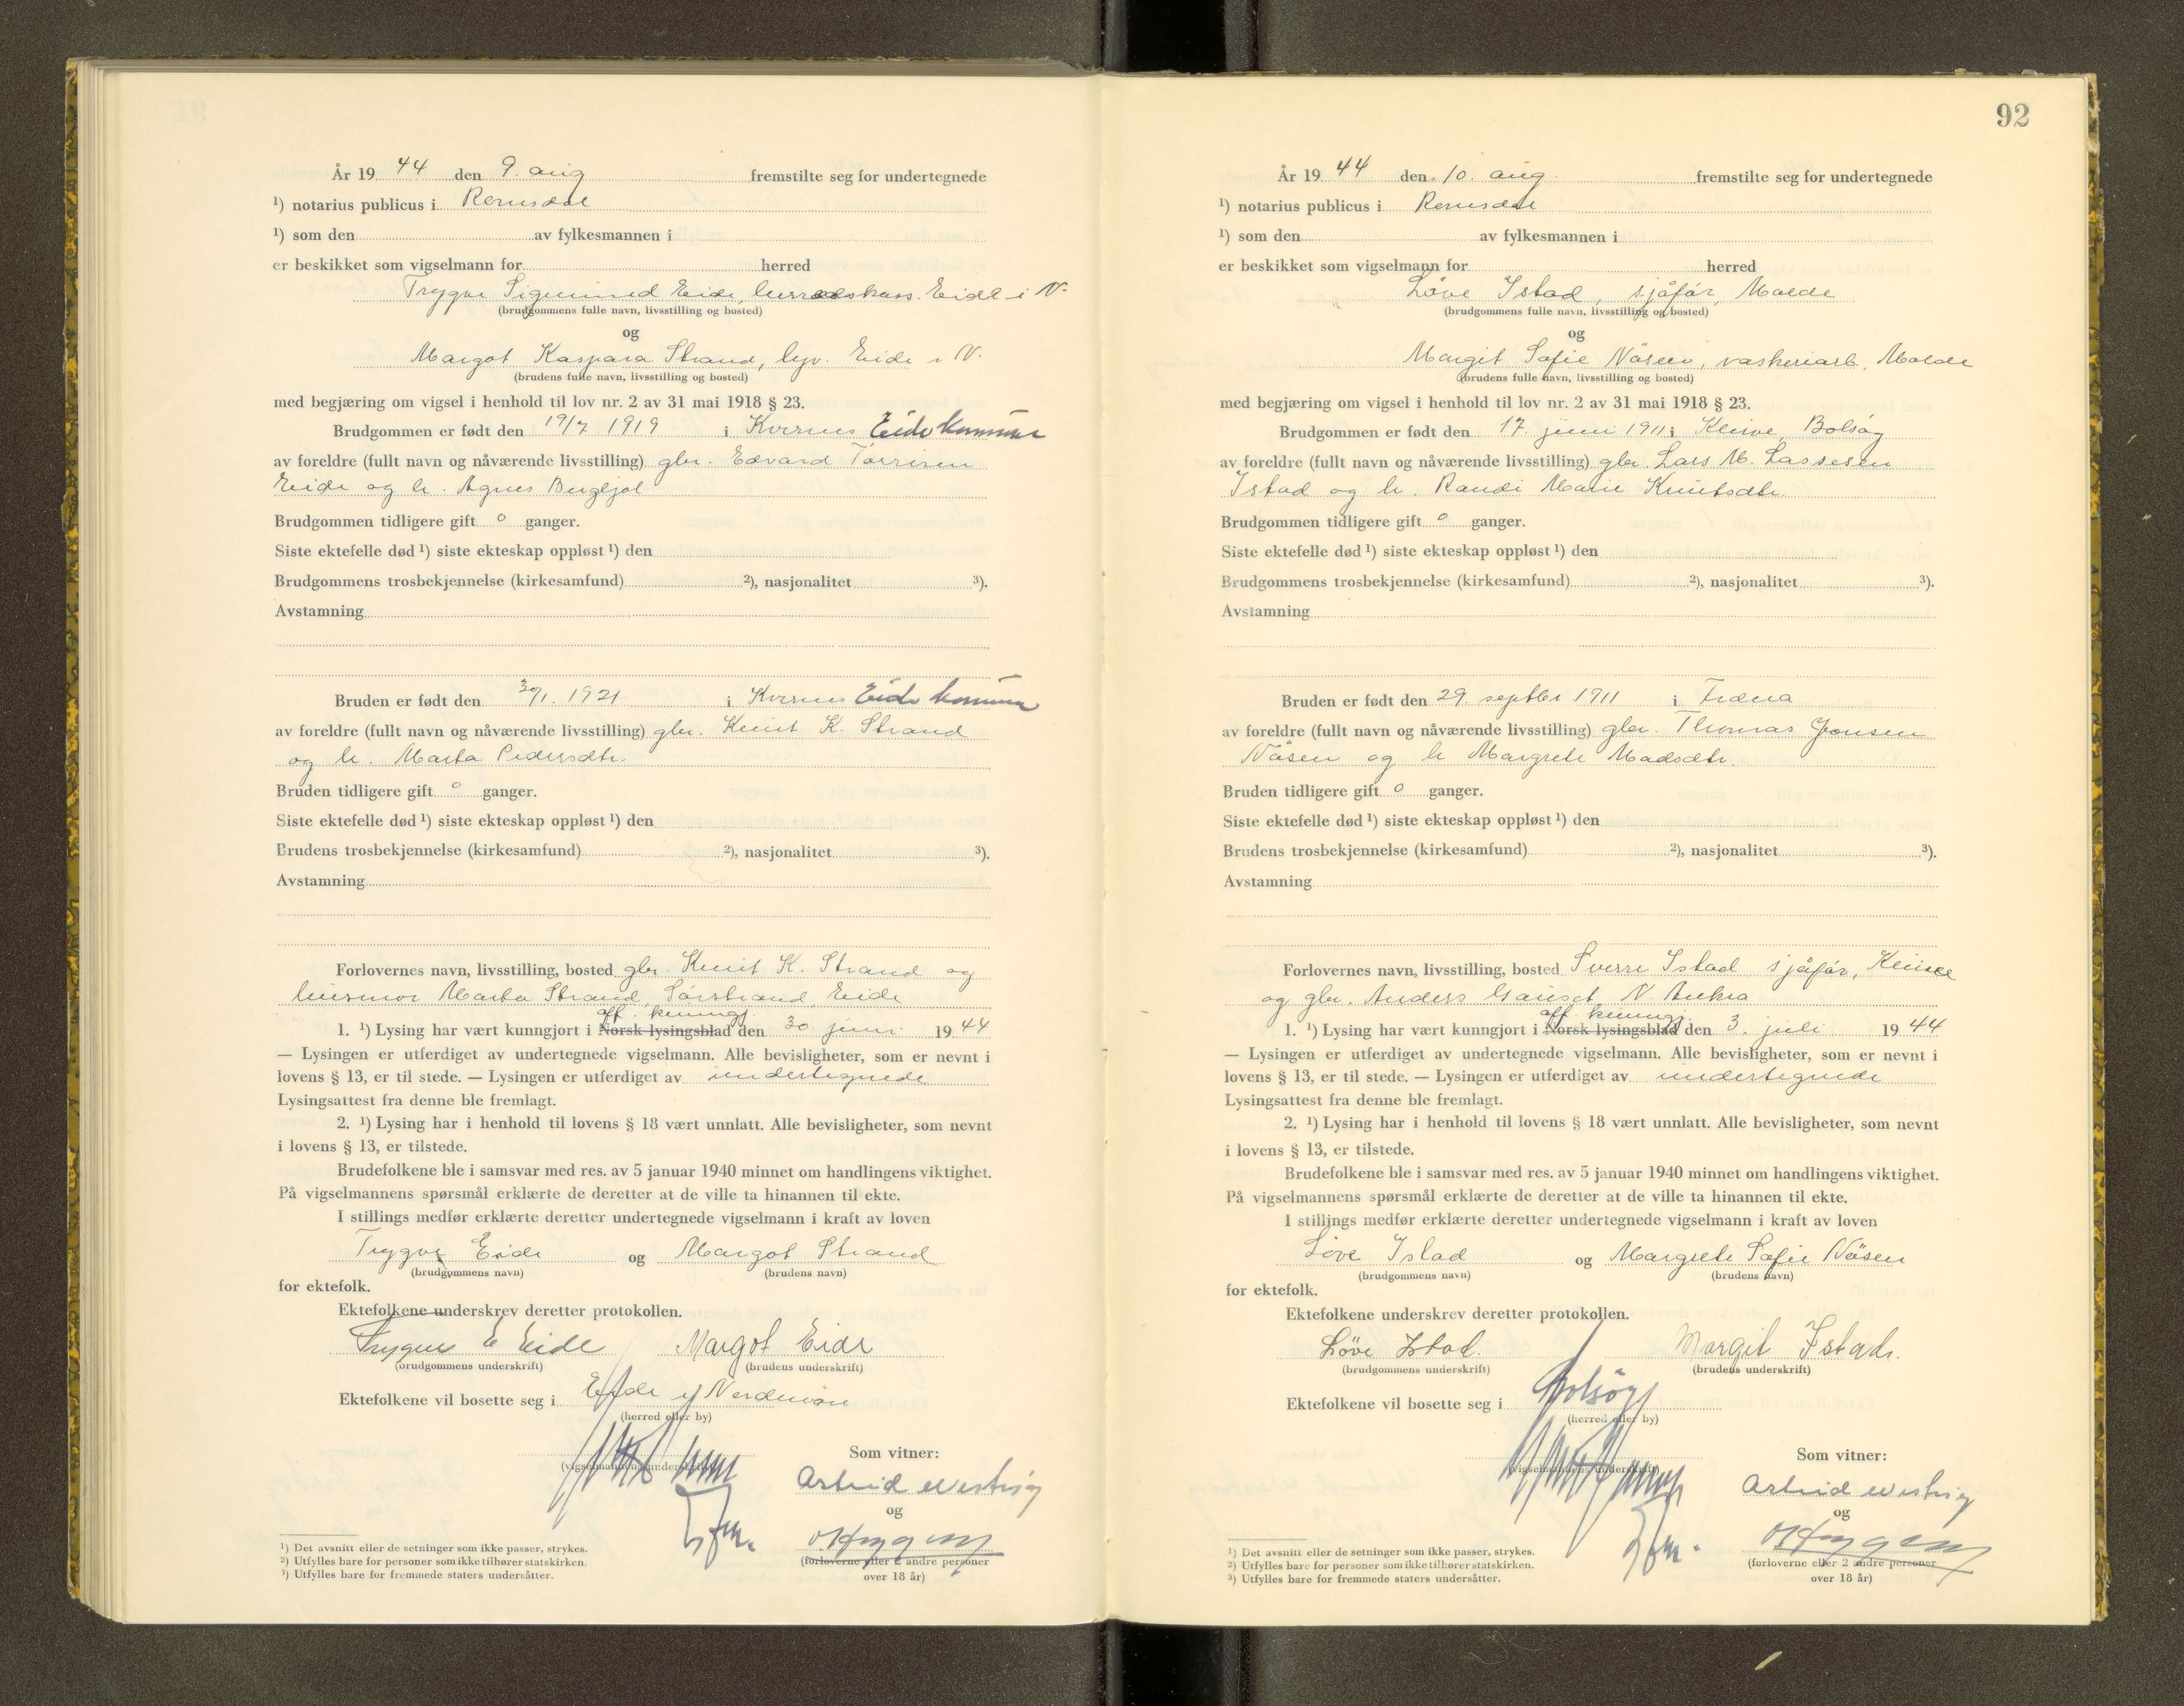 År 19 44 den 9. aug fremstilte seg for undertegnede
¹) notarius publicus i Romsdal
¹) som den av fylkesmannen i
er beskikket som vigselmann for herred
Trygve Sigmund Eide, herredskass. Eide i N.
(brudgommens fulle navn, livsstilling og bosted)
og
Margot Kaspara Strand, Eide i N.
(brudens fulle navn, livsstilling og bosted)
med begjæring om vigsel i henhold til lov nr. 2 av 31 mai 1918 § 23.
Brudgommen er født den 1919 i Kvernes Eide kommune
av foreldre (fullt navn og nåværende livsstilling) gbr. Edvard Torrisen
Eide og h. Agnes
Brudgommen tidligere gift 0 ganger.
Siste ektefelle død ¹) siste ekteskap oppløst ¹) den
Brudgommens trosbekjennelse (kirkesamfund) ²), nasjonalitet ³).
Avstamning
Bruden er født den 30/1. 1921 i Kvernes Eide kommune
av foreldre (fullt navn og nåværende livsstilling) gbr. Knut K. Strand
og h. Marta Pedersdtr.
Bruden tidligere gift 0 ganger.
Siste ektefelle død ¹) siste ekteskap oppløst ¹) den
Brudens trosbekjennelse (kirkesamfund) ²), nasjonalitet ³).
Avstamning
Forlovernes navn, livsstilling, bosted gbr. Knut K. Strand og
husmor Marta Strand, Sørstrand, Eide
off. kunngj.
1. ¹) Lysing har vært kunngjort i Norsk lysingsblad den 30. juni 19 44
— Lysingen er utferdiget av undertegnede vigselmann. Alle bevisligheter, som er nevnt i
lovens § 13, er til stede. — Lysingen er utferdiget av undertegnede
Lysingsattest fra denne ble fremlagt.
2. ¹) Lysing har i henhold til lovens § 18 vært unnlatt. Alle bevisligheter, som nevnt
i lovens § 13, er tilstede.
Brudefolkene ble i samsvar med res. av 5 januar 1940 minnet om handlingens viktighet.
På vigselmannens spørsmål erklærte de deretter at de ville ta hinannen til ekte.
I stillings medfør erklærte deretter undertegnede vigselmann i kraft av loven
Trygve Eide og Margot Strand
(brudgommens navn) (brudens navn)
for ektefolk.
Ektefolkene underskrev deretter protokollen.
Trygve E Eide Margot Eide
(brudgommens underskrift) (brudens underskrift)
Ektefolkene vil bosette seg i Eide på Nordmøre
(herred eller by)
Som vitner:
(vigselmannens underskrift)
Astrid
og
(forloverne eller 2 andre personer
over 18 år)
¹) Det avsnitt eller de setninger som ikke passer, strykes.
²) Utfylles bare for personer som ikke tilhører statskirken.
³) Utfylles bare for fremmede staters undersåtter.
92
År 19 44 den 10. aug. fremstilte seg for undertegnede
¹) notarius publicus i Romsdal
¹) som den av fylkesmannen i
er beskikket som vigselmann for herred
Løve Istad, sjåfør, Molde
(brudgommens fulle navn, livsstilling og bosted)
og
Margit Sofie Näsen, vaskeriarb., Molde
(brudens fulle navn, livsstilling og bosted)
med begjæring om vigsel i henhold til lov nr. 2 av 31 mai 1918 § 23.
Brudgommen er født den 17. juni 1911 i Kleive, Bolsøy
av foreldre (fullt navn og nåværende livsstilling) gbr. Lars M. Lassesen
Istad og h. Randi Marie Knutsdtr.
Brudgommen tidligere gift 0 ganger.
Siste ektefelle død ¹) siste ekteskap oppløst ¹) den
Brudgommens trosbekjennelse (kirkesamfund) ²), nasjonalitet ³).
Avstamning
Bruden er født den 29. septbr 1911 i Fræna
av foreldre (fullt navn og nåværende livsstilling) gbr. Thomas Jonsen
Näsen og h. Margrete Madsdtr.
Bruden tidligere gift 0 ganger.
Siste ektefelle død ¹) siste ekteskap oppløst ¹) den
Brudens trosbekjennelse (kirkesamfund) ²), nasjonalitet ³).
Avstamning
Forlovernes navn, livsstilling, bosted Sverre Istad sjåfør, Kleive
og gbr. Anders Gauset, N. Aukra
off. kunngj.
1. ¹) Lysing har vært kunngjort i Norsk lysingsblad den 3. juli 19 44
— Lysingen er utferdiget av undertegnede vigselmann. Alle bevisligheter, som er nevnt i
lovens § 13, er til stede. — Lysingen er utferdiget av undertegnede
Lysingsattest fra denne ble fremlagt.
2. ¹) Lysing har i henhold til lovens § 18 vært unnlatt. Alle bevisligheter, som nevnt
i lovens § 13, er tilstede.
Brudefolkene ble i samsvar med res. av 5 januar 1940 minnet om handlingens viktighet.
På vigselmannens spørsmål erklærte de deretter at de ville ta hinannen til ekte.
I stillings medfør erklærte deretter undertegnede vigselmann i kraft av loven
Løve Istad og Margrete Sofie Näsen
(brudgommens navn) (brudens navn)
for ektefolk.
Ektefolkene underskrev deretter protokollen.
Løve Istad. Margit Istad.
(brudgommens underskrift) (brudens underskrift)
Ektefolkene vil bosette seg i Bolsøy
(herred eller by)
Som vitner:
(vigselmannens underskrift)
Astrid
og
(forloverne eller 2 andre personer
over 18 år)
¹) Det avsnitt eller de setninger som ikke passer, strykes.
²) Utfylles bare for personer som ikke tilhører statskirken.
³) Utfylles bare for fremmede staters undersåtter.